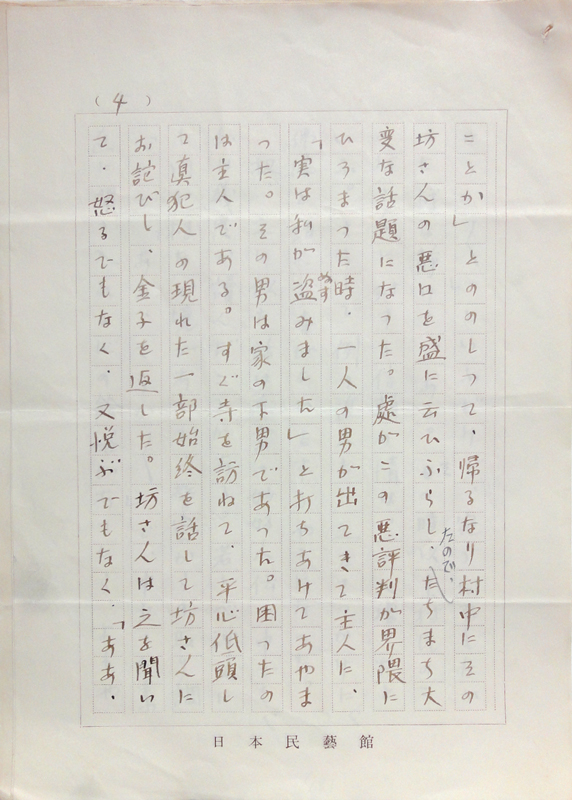 （4）
ことか」とののしつて、帰るなり村中にその
坊さんの悪口を盛に云ひふらしたので、たちまち大
変な話題になつた。處がこの悪評判が界隈に
ひろまつた時、一人の男が出てきて主人に、
「実は私が盗みました」と打ちあけてあやま
ぬす
つた。その男は家の下男であつた。困つたの
は主人である。すぐ寺を訪ねて、平心低頭し
て真犯人の現れた一部始終を話して坊さんに
お詑びし、金子を返した。坊さんは之を聞い
て、怒るでもなく、又悦ぶでもなく、「ああ、
日本民藝館